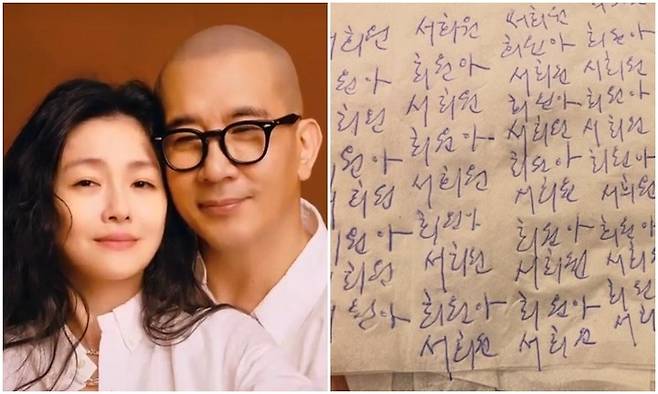 희원 서희원 서희원
희원아 희원아
원아 희원아 서희원 서희원
희원 서희원 희원아 희원아
원아 희원아 서희원 서희원
희원아 희원아
희원 서희원 서희원 서희원
원아 희원아 희원아 희원아
희원 서희원 서희원 서희
원아 희원아 희원아 희원
서희원 서희원 서희